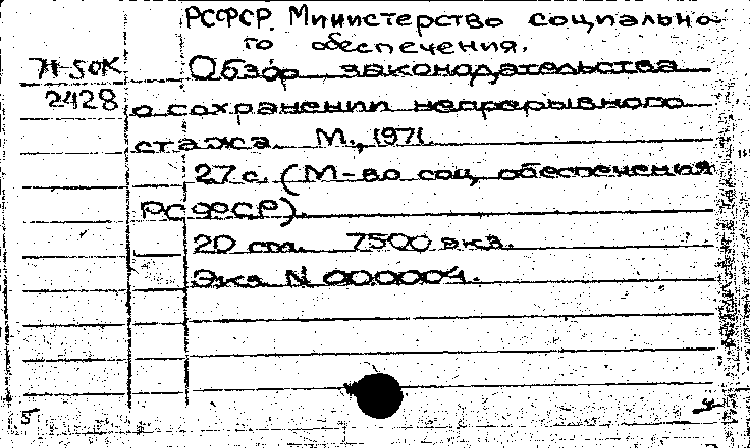 РСФСР. Министерство социально-
го обеспечения.
71-50К Обзор законодательства
2428 о сохранении непрерывного
стажа. М., 1971.
27 с. (М-во соц. обеспечения
РСФСР).
20 стр. 7500 экз.
Экз. N 000004.